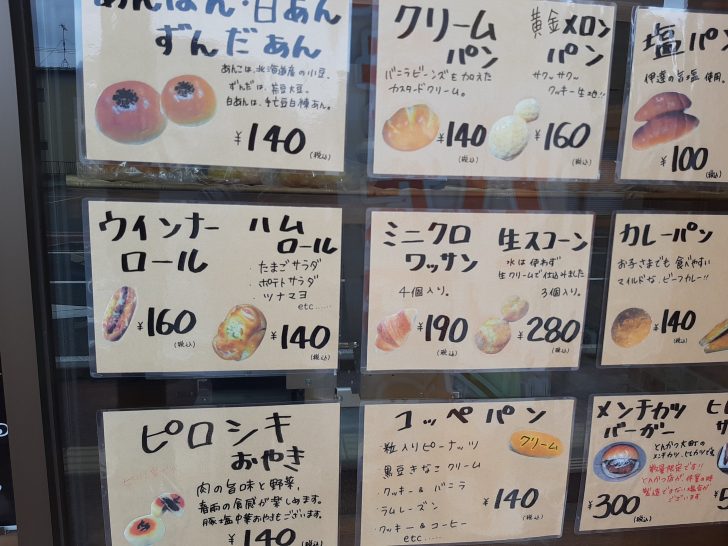 あんぱん・白あん
ずんだあん
あんこは、北海道産の小豆。
ずんだは、茶豆大豆。
白あんは、手亡豆白種あん。
¥140(税込)
クリーム
パン
バニラビーンズを加えた
カスタードクリーム。
¥140(税込)
黄金メロン
パン
サクッサクッ
クッキー生地!!
¥160(税込)
塩パン
伊達の旨塩使用。
¥100(税込)
ウインナー
ロール
¥160(税込)
ハム
ロール
・たまごサラダ
・ポテトサラダ
・ツナマヨ
etc.....
¥140(税込)
ミニクロ
ワッサン
4個入り。
¥190(税込)
生スコーン
水は使わず
生クリームで仕込みました
3個入り。
¥280(税込)
カレーパン
お子さまでも食べやすい
マイルドな、ビーフカレー!!
¥140(税込)
ピロシキ
おやき
肉の旨味と野菜、
春雨の食感が楽しめます。
豚塩中華おやきもございます。
¥140(税込)
コッペパン
・粒入りピーナッツ
・黒豆きなこクリーム
・クッキー&バニラ
・ラムレーズン
・クッキー&コーヒー
etc......
クリーム
¥140(税込)
メンチカツ
バーガー
とんかつ大町の
メンチカツ、ヒレカツです
数量限定です!!
とんかつ店が、休業の時
製造できない場合が
ございます。
¥300(税込)